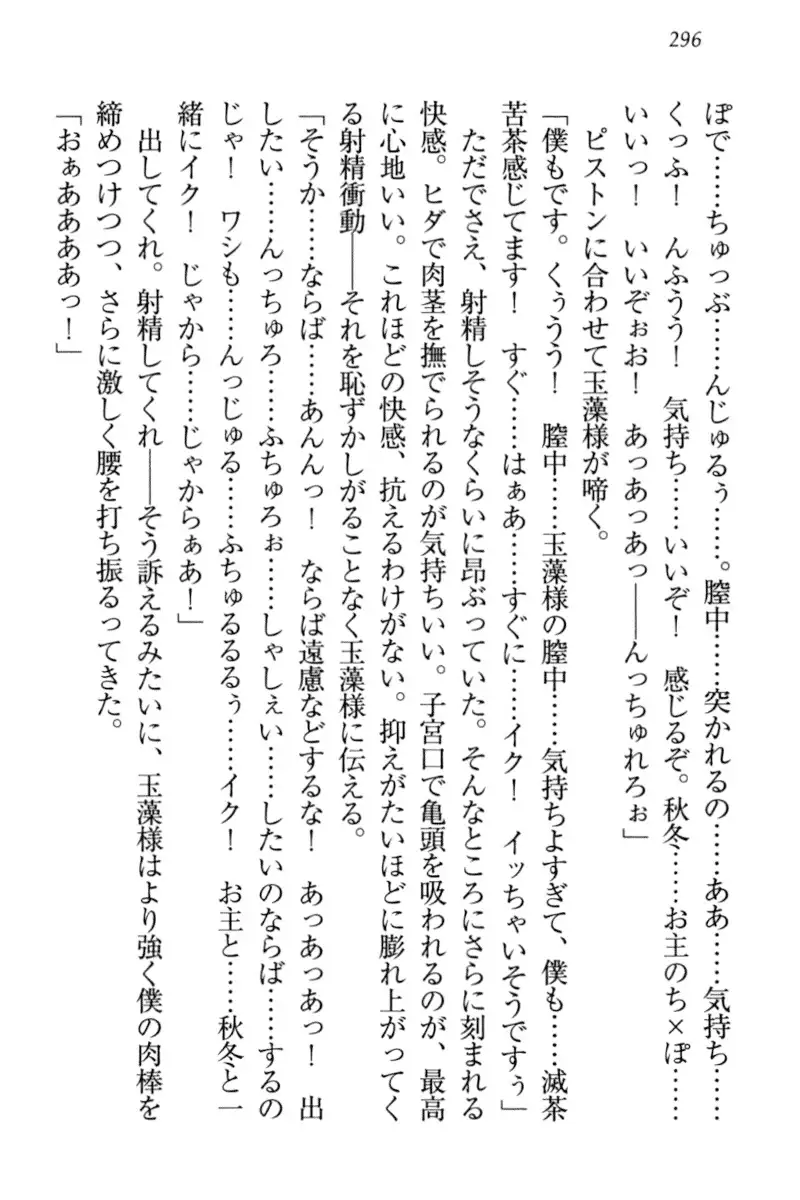 296
ぽで……ちゅっぶ……んじゅるぅ……。膣中……突かれるの……ああ……気持ち……
くっふ！　んふうう！　気持ち……いいぞ！　感じるぞ。秋冬……お主のち×ぽ……
いいっ！　いいぞぉお！　あっあっあっ――んっちゅれろぉ」
ピストンに合わせて玉藻様が啼く。
「僕もです。くぅうう！　膣中……玉藻様の膣中……気持ちよすぎて、僕も……滅茶
苦茶感じてます！　すぐ……はぁあ……すぐに……イク！　イッちゃいそうですぅ」
ただでさえ、射精しそうなくらいに昂ぶっていた。そんなところにさらに刻まれる
快感。ヒダで肉茎を撫でられるのが気持ちいい。子宮口で亀頭を吸われるのが、最高
に心地いい。これほどの快感、抗えるわけがない。抑えがたいほどに膨れ上がってく
る射精衝動――それを恥ずかしがることなく玉藻様に伝える。
「そうか……ならば……あんんっ！　ならば遠慮などするな！　あっあっあっ！　出
したい……んっちゅろ……ふちゅろぉ……しゃしぇい……したいのならば……するの
じゃ！　ワシも……んっじゅる……ふちゅるるるぅ……イク！　お主と……秋冬と一
緒にイク！　じゃから……じゃからぁあ！」
出してくれ。射精してくれ――そう訴えるみたいに、玉藻様はより強く僕の肉棒を
締めつけつつ、さらに激しく腰を打ち振るってきた。
「おぁああああっ！」